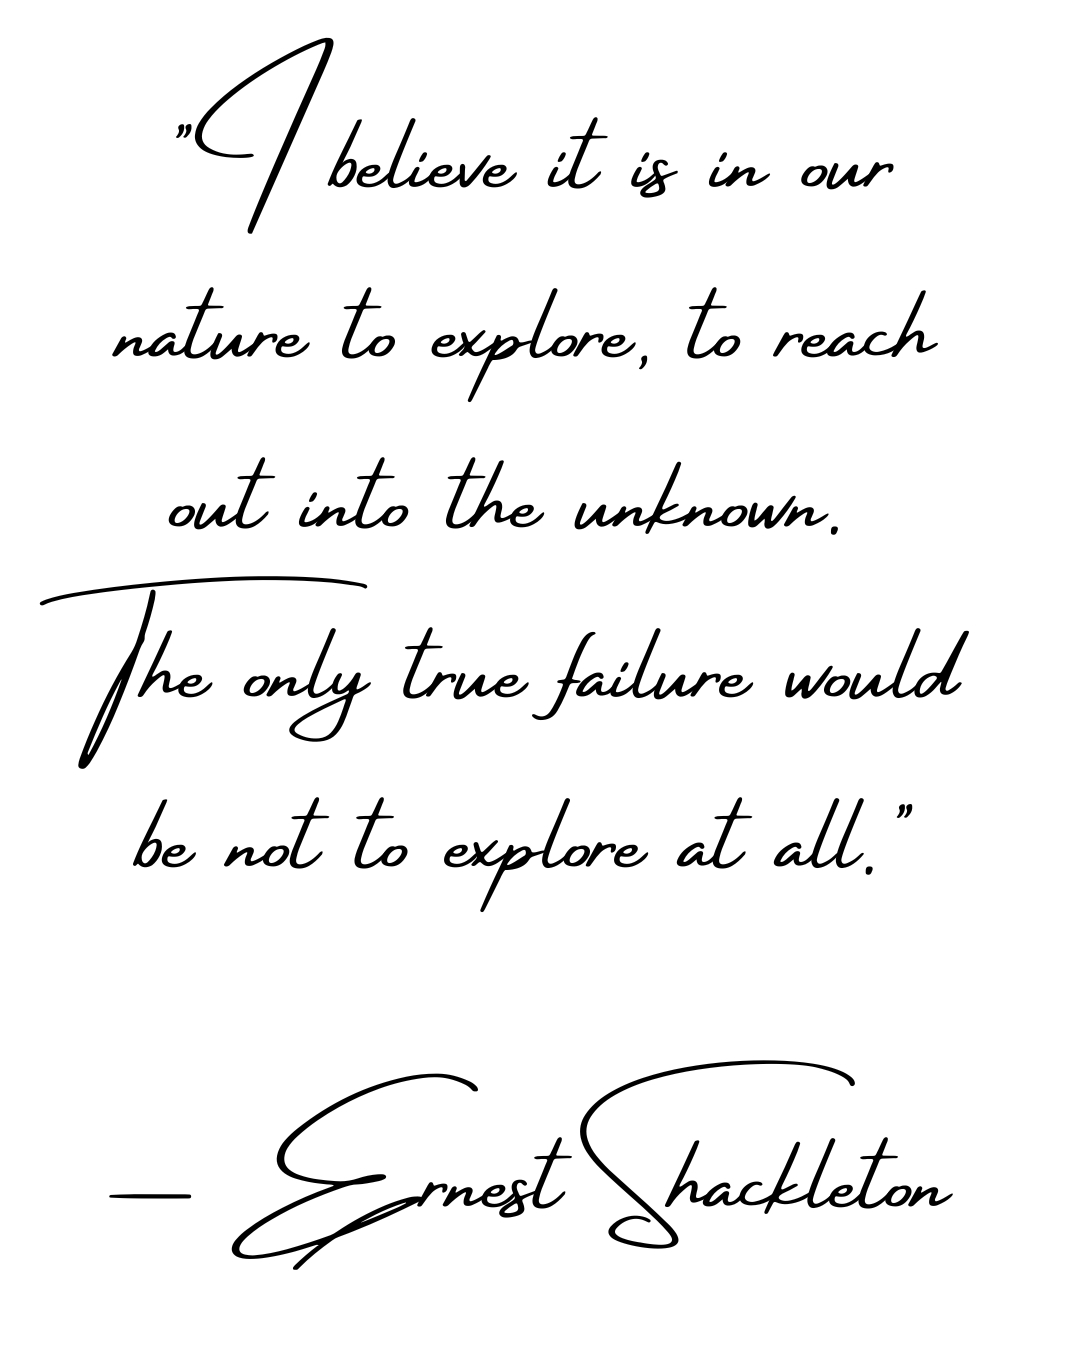 "I believe it is in our
nature to explore, to reach
out into the unknown.
The only true failure would
be not to explore at all."
— Ernest Shackleton